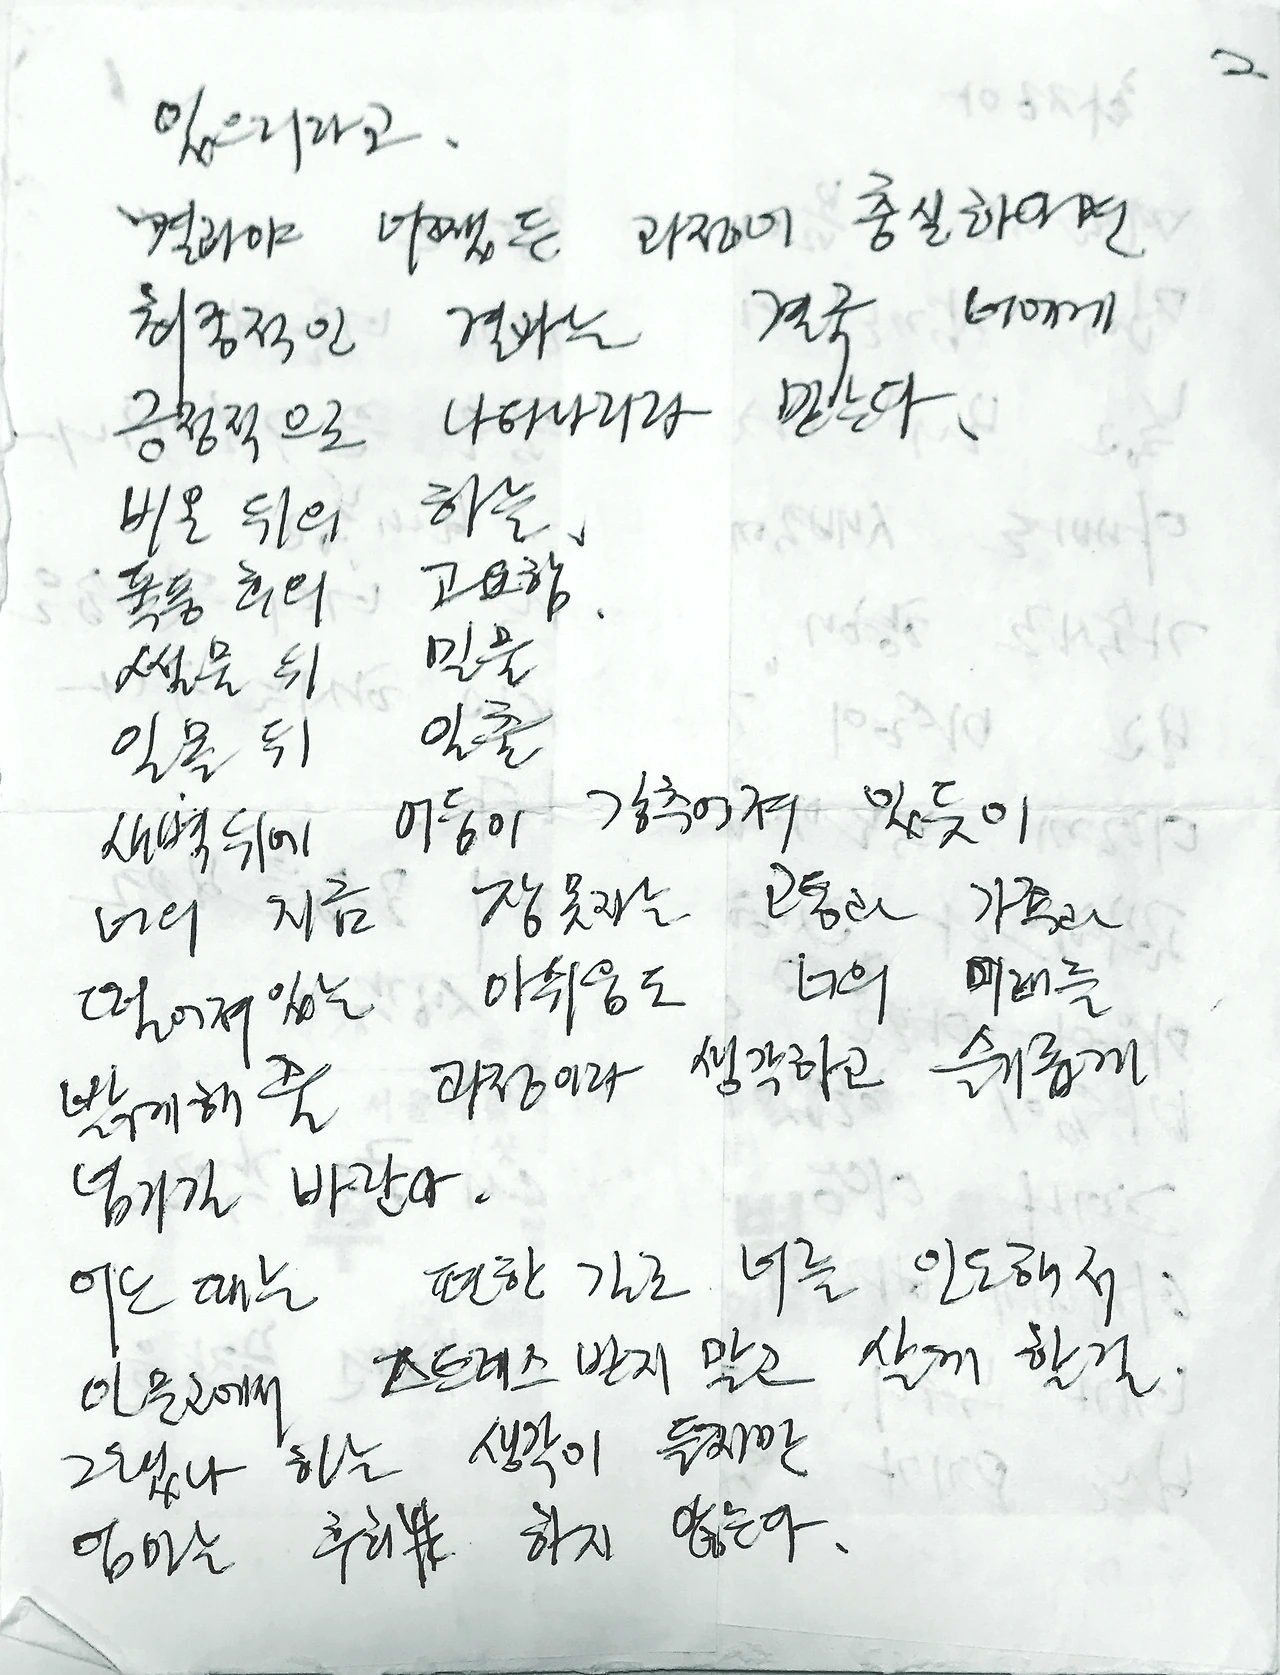 2
있으리라고.
결과야 어쨌든 과정이 충실하다면
최종적인 결과는 결국 너에게
긍정적으로 나타나리라 믿는다.
비온 뒤의 하늘,
폭풍 후의 고요함.
썰물 뒤 밀물
일몰 뒤 일출
새벽뒤에 어둠이 감추어져 있듯이
너의 지금 잠못자는 고통과 가족과
떨어져있는 아쉬움도 너의 미래를
밝게해 줄 과정이라 생각하고 슬기롭게
넘기길 바란다.
어느 때는 편한 길로 너를 인도해서
인문고에서 스트레스 받지 말고 살게 할걸
그랬나 하는 생각이 들지만
엄마는 후회 하지 않는다.